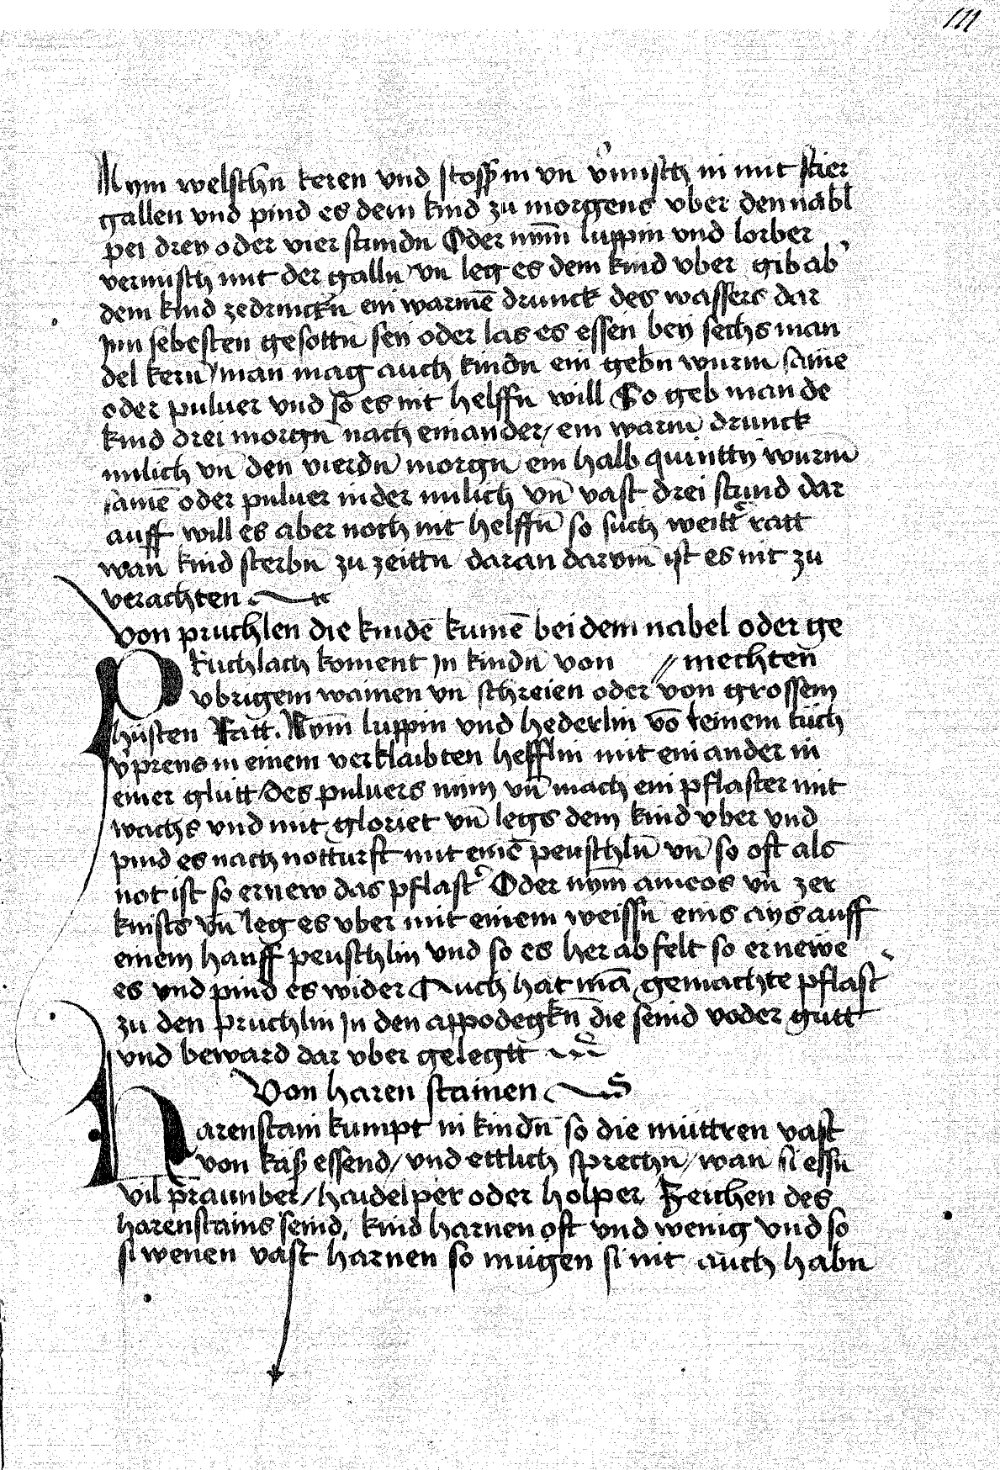 111
Nym welschn keren vnd stoss in vn̄ v̓mischtz in mit stier
gallen vnd pind es dem kind zu morgens vber den nabl
pei drey oder vier stundn̄ Oder nym̄ luppin vnd lorber
vermisch mit der galln̄ vn̄ leg es dem kind vber gib ab̓
dem kind zedrinckn̄ ein warmē drunck des wassers dar
Inn sebesten gesottn̄ sey oder las es essen bey sechs man
del kern / man mag auch kindn̄ ein gebn̄ wurm same
oder puluer vnd so es nit helffn̄ will So geb man de
kind drei morgn̄ nach einander / ein warm̄ drunck
milich vn̄ den vierdn̄ morgn̄ ein halb quinttn̄ wurm̄
samē oder puluer in der milich vn̄ vast drei stund dar
auff will es aber noch nit helffn̄ so such weitt̓ ratt
wan̄ kind sterbn̄ zu zeittn̄ daran darvm̄ ist es nit zu
verachten
Von pruchlen die kindē kumē bei dem nabel oder ge
Pruchlach koment Jn kindn̄ von // mechten
vbrigem wainen vn̄ schreien oder von grossem
husten Ratt. Nym̄ luppin vnd hederlin vō leinem tuch
v̓prens in einem verklaibten hefflin mit einander in
einer glutt / des puluers nim vn̄ mach ein pflaster mit
wachs vnd mit gloriet vn̄ legs dem kind vber vnd
pind es nach notturft mit einē peuschln̄ vn̄ so oft als
not ist so ernew das pflast̓ Oder nym̄ ameos vn̄ zer
knists vn̄ leg es vber mit einem weissn̄ eins ays auff
einem hanff peuschlin vnd so es herab felt so erneẅe
es vnd pind es wider Auch hat mā gemachte pflast̓
zu den pruchlin Jn den appodegkn̄ die seind voder gutt
vnd beward dar vber gelegtt
Von haren stainen
Harenstain kumpt in kindn̄ so die muttren vast
von käß essend / vnd ettlich sprechn̄ / wan si essn̄
vil praunber / haidelper oder holper Zeichen des
harenstains seind / kind harnen oft vnd wenig vnd so
si wenen vast harnen so mügen si nit auch habn̄